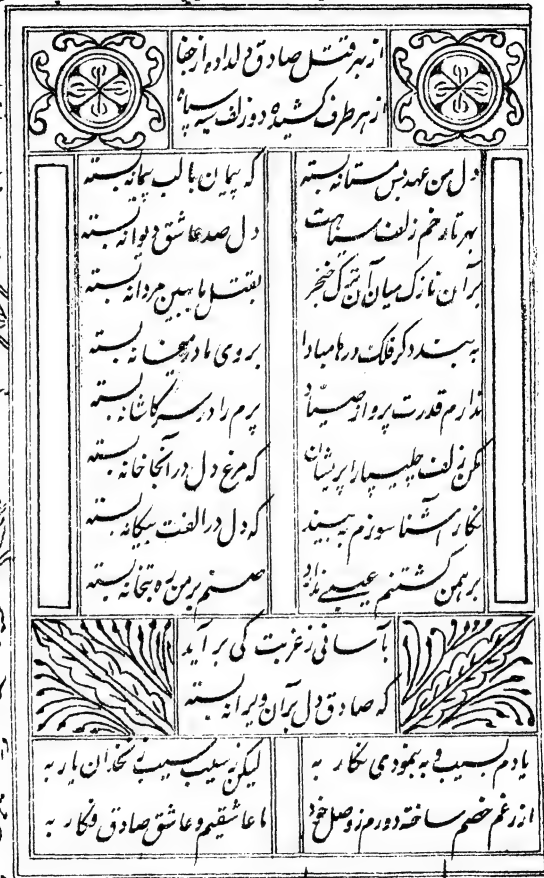 از بهر قتل صادق دلداده از جفا
از هر طرف کشیده دو زلف سیه سپاه
دل من عهد بس مستانه بسته
که پیمان با لب پیمانه بسته
بهر تار خم زلف سیاهت
دل صد عاشق دیوانه بسته
بر آن نازک میان آن ترک خنجر
بقتل ما ببین مردانه بسته
به بندد گر فلک درها مبادا
بروی ما در میخانه بسته
ندارم قدرت پرواز صیاد
پرم را در سر کاشانه بسته
مکن زلف چلیپا را پریشان
که مرغ دل در آنجا خانه بسته
نگار آشنا سوزم به بیند
که دل در الفت بیگانه بسته
برهمن گشتنم عیبی ندارد
صنم بر من ره بتخانه بسته
بآسانی ز غربت کی بر آید
که صادق دل بر آن ویرانه بسته
یادم بسیب و به بنمودی نگار به
لیکن ز سیب سیب زنخدان یار به
از رغم خصم ساخته دورم ز وصل خود
ما عاشقیم و عاشق صادق فگار به